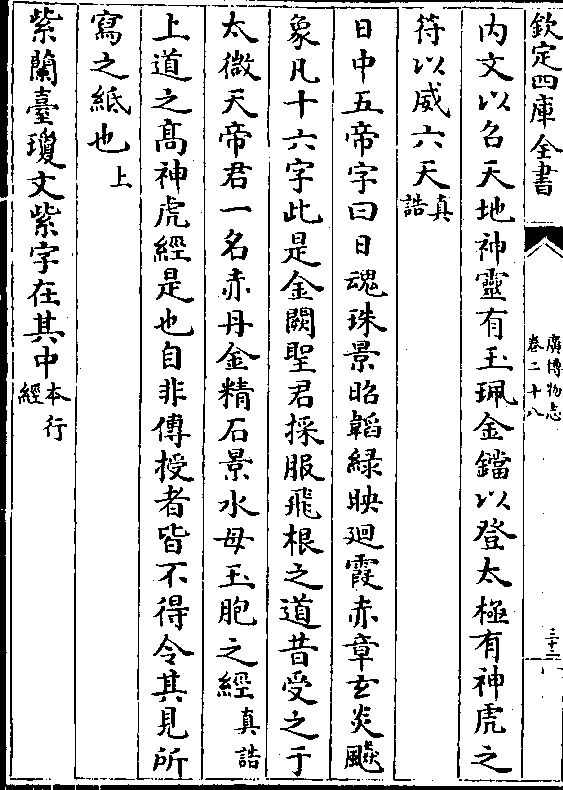 欽定四庫全書
廣博物志
卷二十八
三十二
內文以召天地神靈有玉珮金鐺以登太極有神虎之
符以威六天真誥
日中五帝字曰日魂珠景昭韜緑映廻霞赤章玄炎飈
象凡十六字此是金闕聖君採服飛根之道昔受之于
太微天帝君一名赤丹金精石景水母玉胞之經真誥
上道之髙神虎經是也自非傳授者皆不得令其見所
寫之紙也上
紫蘭臺瓊文紫字在其中本行經